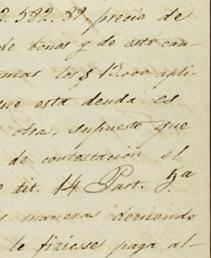 2.582.89 precio de
de bonos y de esta can-
mar los $13.000 apli-
que esta deuda es
otra, supuesto que
de contestacion el
e tit. 14 Part. 5ª
s maneras deniendo
le fiziesse paga al-